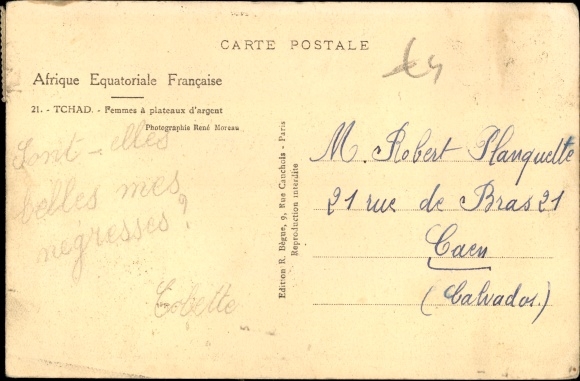 CARTE POSTALE
Afrique Equatoriale Française
21. - TCHAD. - Femmes à plateaux d'argent
Photographie René Moreau
Sont-elles
belles mes
negresses?
Cobette
Edition R. Bègue, 9, Rue Cauchois - Paris
Reproduction interdite
M. Robert Planquette
21 rue de Bras 21
Caen
(Calvados.)